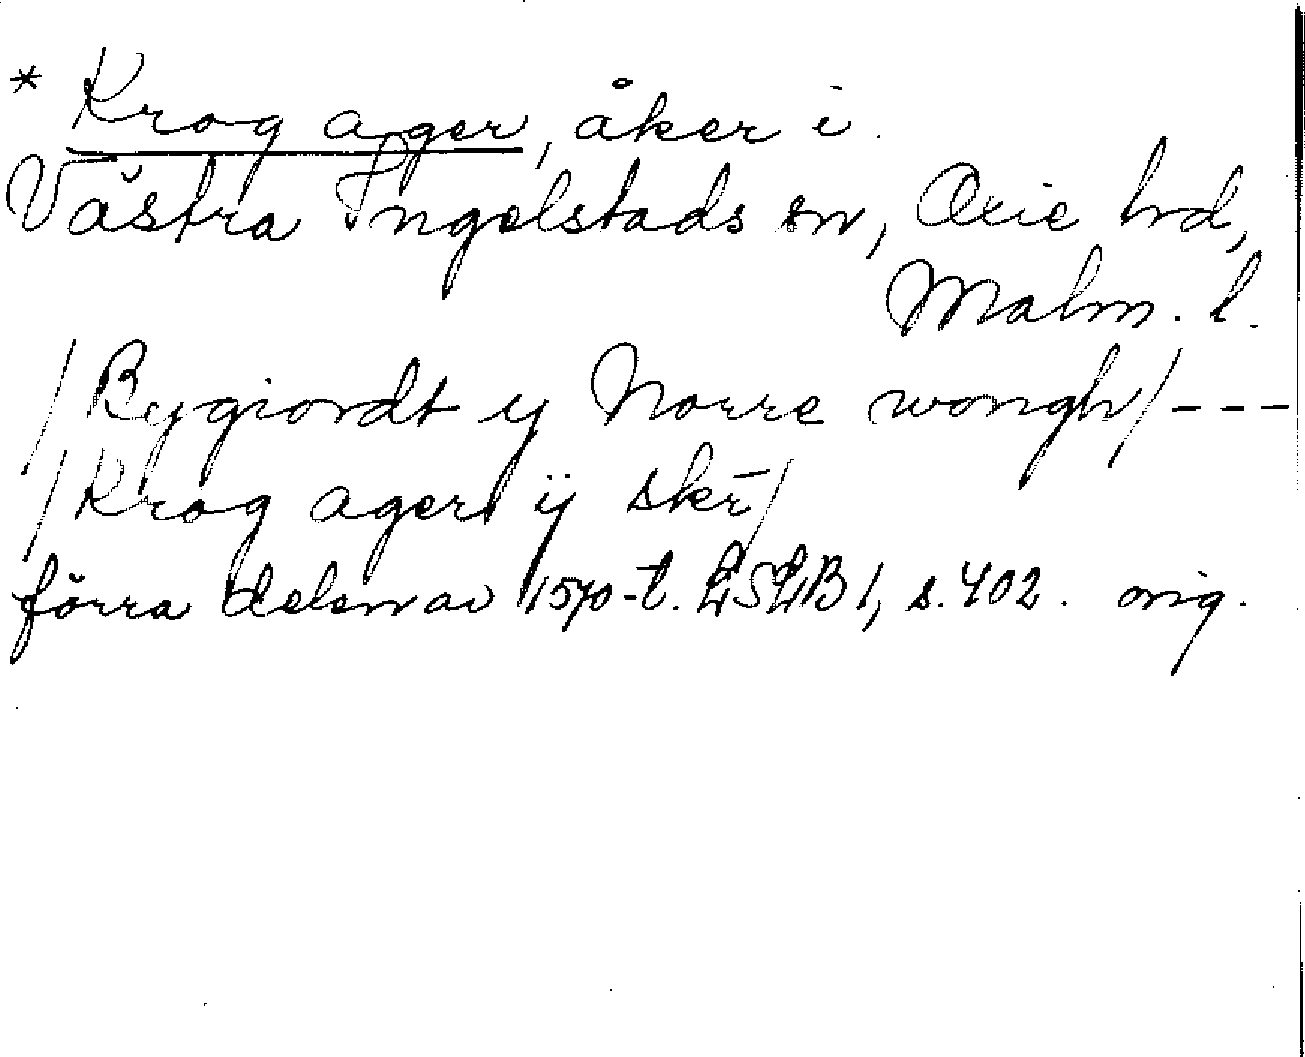 * Krog ager, åker i
Västra Ingelstads sn, Oxie hd,
Malm. l.
/Bygiordt ij Norre wongh/---
/Krog ager ÿ skr̄/
förra delen av 1570-t. LSLB 1, s. 402. orig.